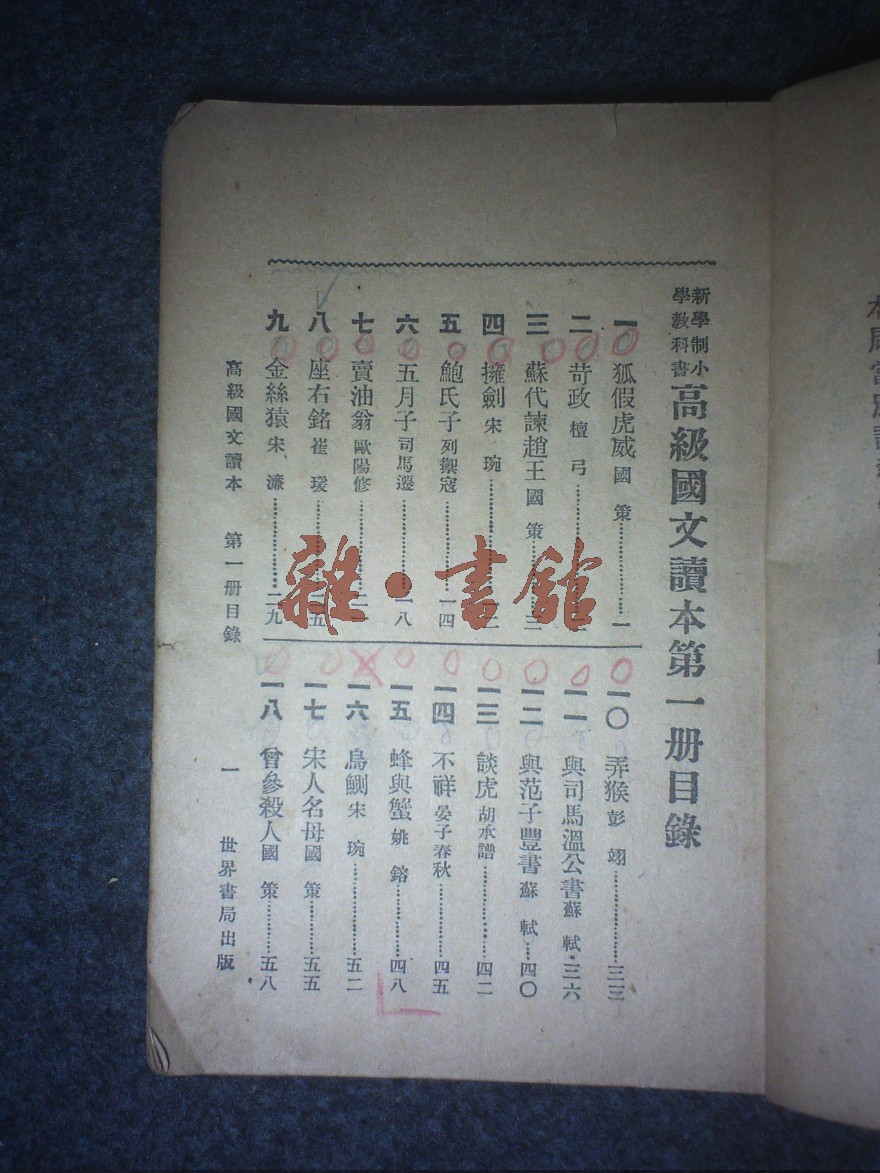 新學制小學教科書 高級國文讀本第一册目錄
一 狐假虎威 國策…………一
二 苛政 檀弓…………
三 蘇代諫趙王 國策…………三
四 擁劍 宋琬…………一二
五 鮑氏子 列禦寇…………一四
六 五月子 司馬遷…………一八
七 賣油翁 歐陽修…………二一
八 座右銘 崔瑗…………二五
九 金絲猿 宋濂…………二九
一〇 弄猴 彭翊…………三三
一一 與司馬溫公書 蘇軾…三六
一二 與范子豐書 蘇軾…四〇
一三 談虎 胡承譜…………四二
一四 不祥 晏子春秋…………四五
一五 蜂與蟹 姚鎔…………四八
一六 烏鰂 宋琬…………五二
一七 宋人名母 國策…………五五
一八 曾參殺人 國策…………五八
高級國文讀本 第一册目錄 一 世界書局出版
雜·書館